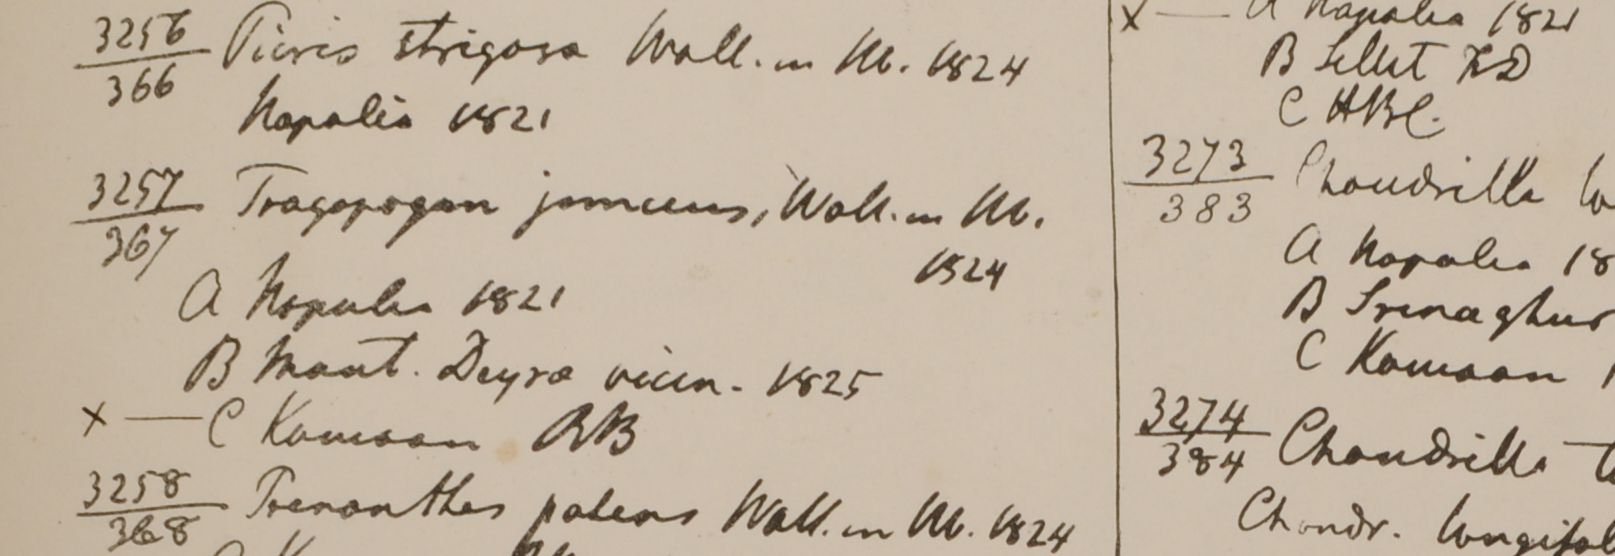 3256 Picris strigosa Wall. in Hb. 1824
366
Napalia 1821
3257 Tragopogon junceus, Wall. in Hb.
367
1824
A Napalia 1821
B Mont. Deyra vicin. 1825
x — C Kamaon RB
3258 Prenanthes patens Wall. in Hb. 1824
368
x — A Napalia 1821
B Sillet FD
C HBC.
3273 Chondrilla
383
A Napalia 18
B Srinaghur
C Kamaon
3274 Chondrilla
384
Chondr. longifol